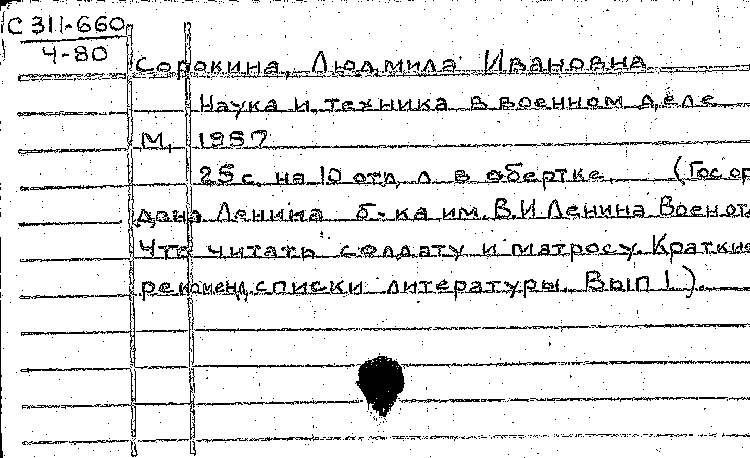 С 311-660
4-80
Сорокина, Людмила Ивановна
Наука и техника в военном деле
М, 1957
25 с. на 10 отд. л. в обертке. (Гос ор
дена Ленина б-ка им. В.И. Ленина Воен от.
Что читать солдату и матросу. Краткие
рекоменд. списки литературы. Вып 1).